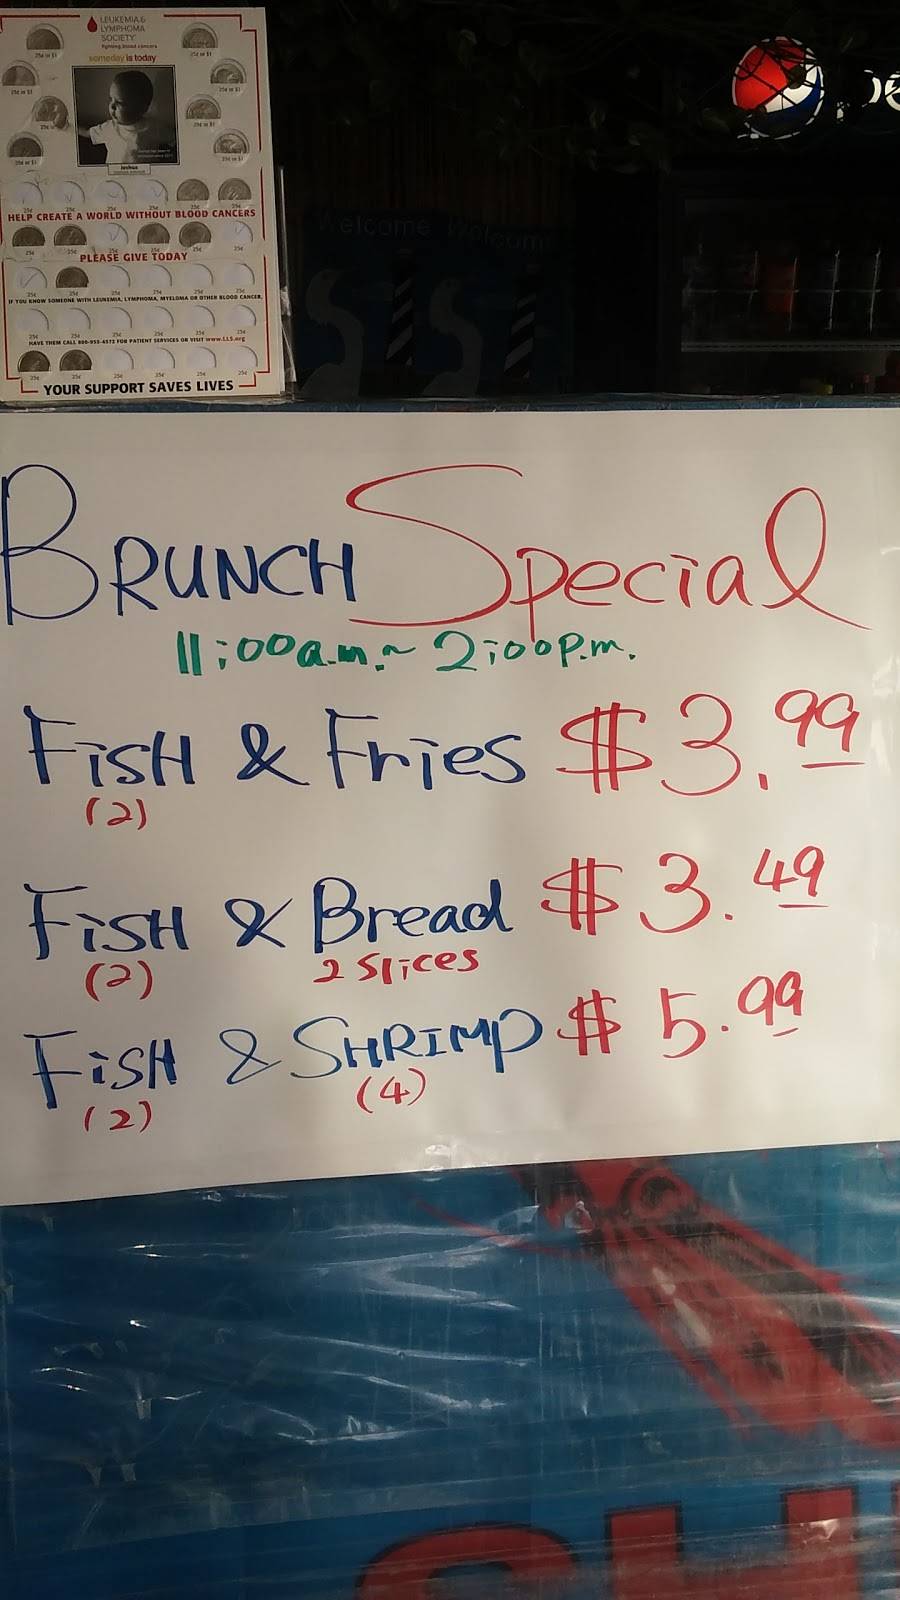 LEUKEMIA &
LYMPHOMA
SOCIETY
fighting blood cancers
someday is today
Joshua
HELP CREATE A WORLD WITHOUT BLOOD CANCERS
PLEASE GIVE TODAY
IF YOU KNOW SOMEONE WITH LEUKEMIA, LYMPHOMA, MYELOMA OR OTHER BLOOD CANCER,
HAVE THEM CALL 800-955-4572 FOR PATIENT SERVICES OR VISIT www.LLS.org
YOUR SUPPORT SAVES LIVES
Welcome Welcome
BRUNCH Special
11:00a.m.~ 2:00P.m.
FiSH & Fries $3.99
(2)
FiSH & Bread $3.49
(2) 2 Slices
FiSH & SHRIMP $5.99
(2) (4)